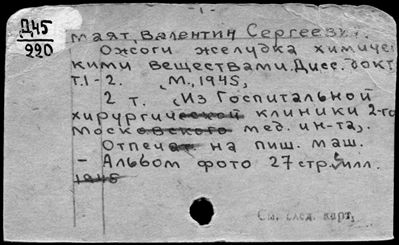 - 1 -
Д45
220
Маят, Валентин Сергеевич.
Ожоги желудка химичес-
кими веществами. Дисс. докт.
т. 1-2. М., 1945,
2 т. (Из Госпитальной
хирургической клиники 2-го
московского мед. ин-та).
Отпечат на пиш. маш.
- Альбом фото 27 стр. илл.
1945
См. след. карт.